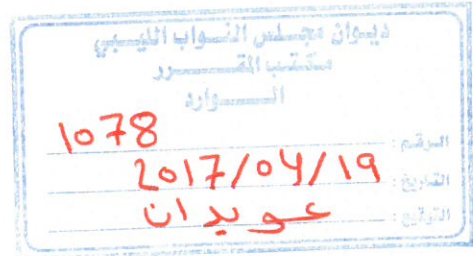 ديوان مجلس النواب الليبي
مكتب المقرر
الوارد
الرقم : 1078
التاريخ : 2017/04/19
التوقيع : عويدان